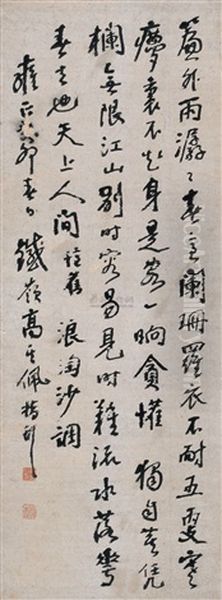 簾外雨潺〻春意闌珊羅衣不耐五更寒
夢裏不知身是客一晌貪懽獨自莫凭
欄無限江山別時容易見時難流水落花
春去也天上人間 浪淘沙調
雍正癸卯春日鐵嶺高其佩指